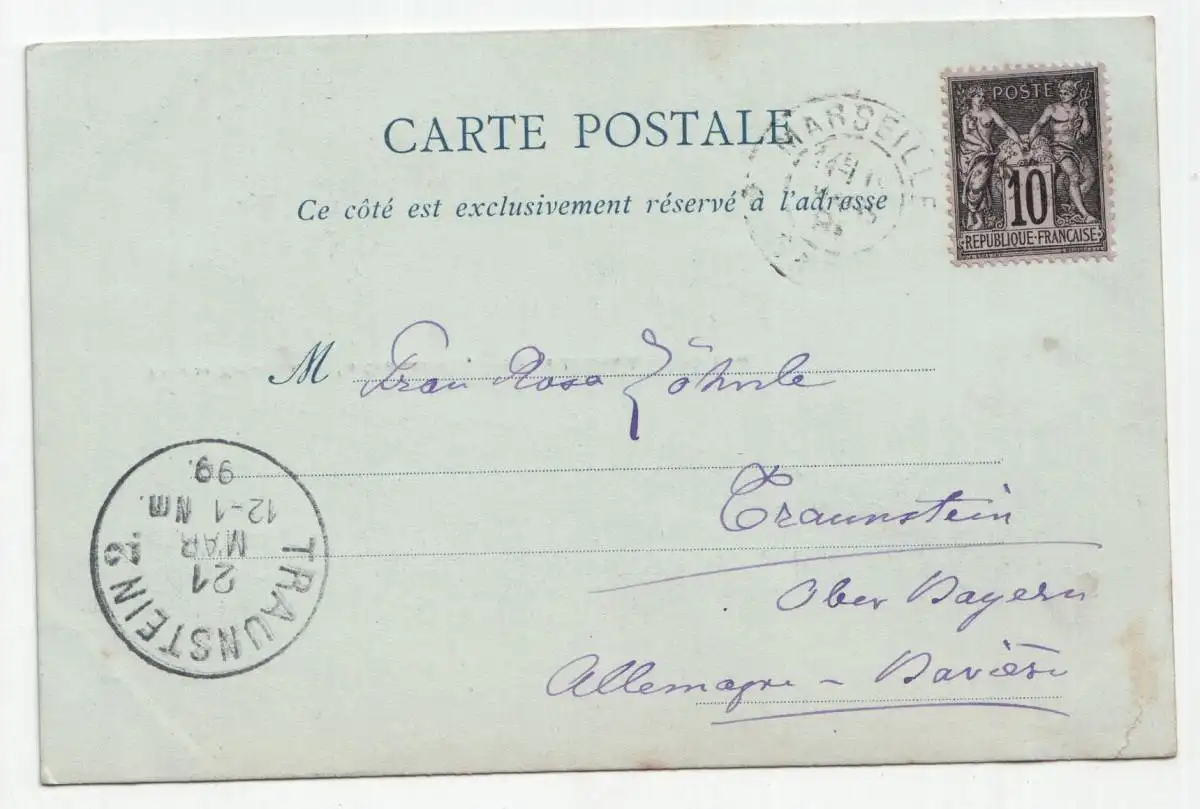 CARTE POSTALE
Ce côté est exclusivement réservé à l'adresse
MARSEILLE
POSTE
10
RÉPUBLIQUE-FRANÇAISE
M Frau Rosa
Traunstein
Ober Bayern
Allemagne - Bavière
TRAUNSTEIN 2.
21
MAR
12-1 Nm.
99.